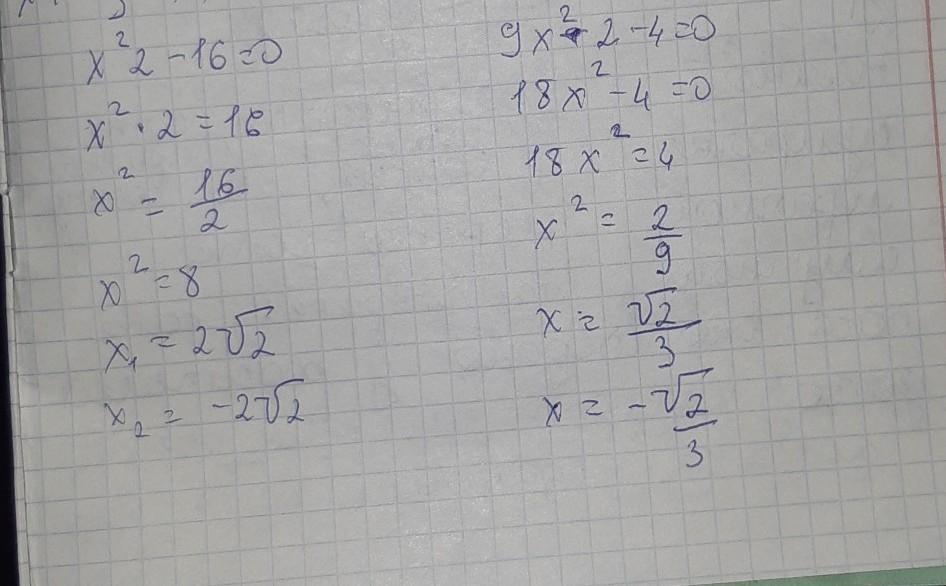 x²2-16=0
x²·2=16
x²=16/2
x²=8
x₁=2√2
x₂=-2√2
9x²·2-4=0
18x²-4=0
18x²=4
x²=2/9
x=√2/3
x=-√2/3